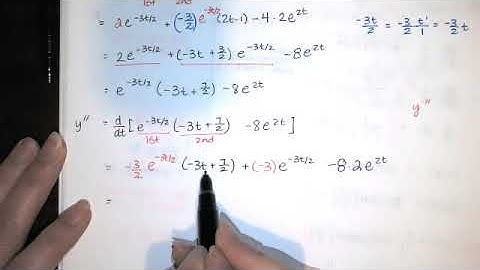 1st 2nd
= 2e^{-3t/2} + (-3/2)e^{-3t/2}(2t-1) - 4·2e^{2t}
-3t/2 = -3/2 t/1 = -3/2 t
= 2e^{-3t/2} + (-3t + 3/2)e^{-3t/2} - 8e^{2t}
1st 2nd
= e^{-3t/2}(-3t + 7/2) - 8e^{2t}
y''
y'' = d/dt[e^{-3t/2}(-3t + 7/2) - 8e^{2t}]
1st 2nd
= -3/2 e^{-3t/2}(-3t + 7/2) + (-3)e^{-3t/2} - 8·2e^{2t}
=